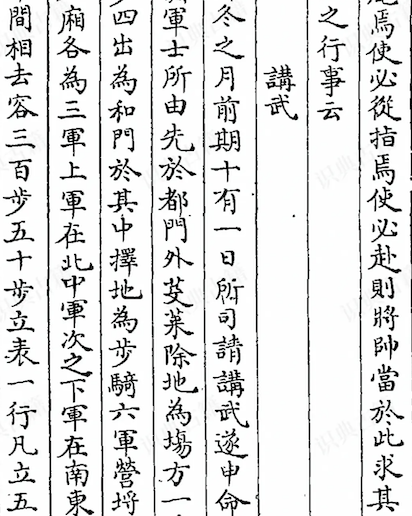 焉使必從指焉使必赴則將帥當於此求其
之行事云
講武
冬之月前期十有一日所司請講武遂申命
軍士所由先於都門外芟萊除地為塲方一
四出為和門於其中擇地為步騎六軍營埒
廂各為三軍上軍在北中軍次之下軍在南東
間相去容三百步五十步立表一行凡立五